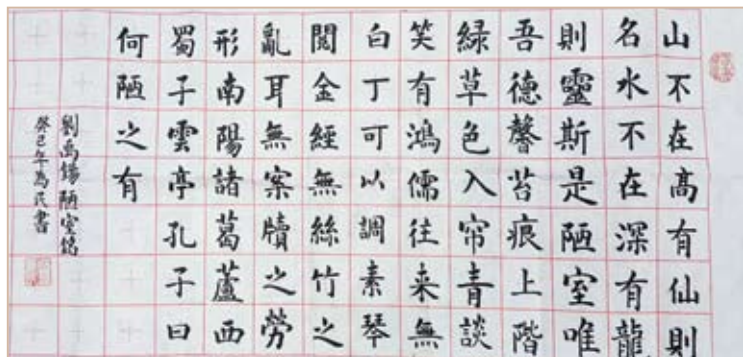 山不在高有仙則
名水不在深有龍
則靈斯是陋室唯
吾德馨苔痕上階
緑草色入帘青談
笑有鴻儒往来無
白丁可以調素琴
閲金經無絲竹之
亂耳無案牘之勞
形南陽諸葛蘆西
蜀子雲亭孔子曰
何陋之有
劉禹錫陋室銘
癸巳年為民書